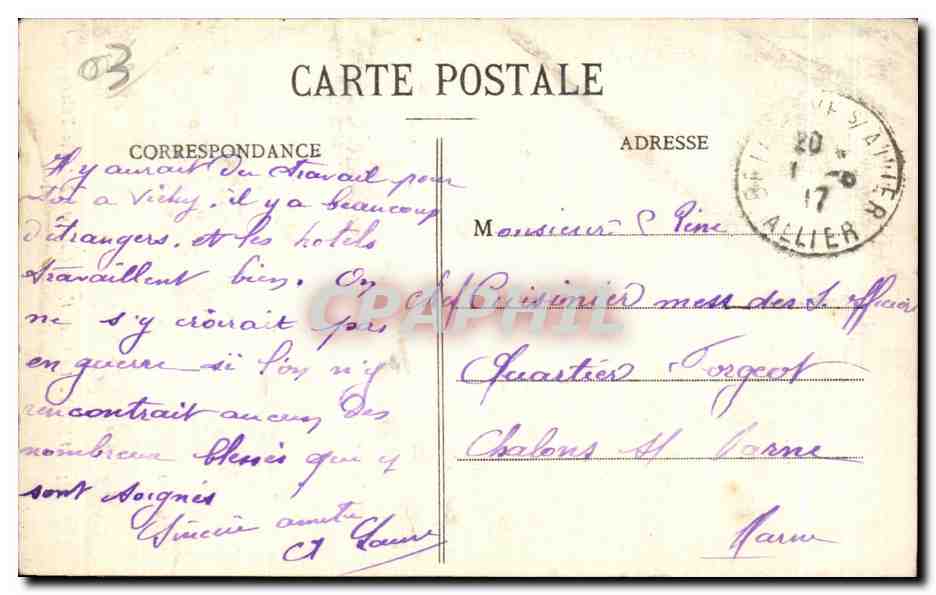 03
CARTE POSTALE
CORRESPONDANCE
Il y aurait du travail pour
toi a Vichy. il y a beaucoup
d'étrangers. et les hotels
travaillent bien. On
ne s'y croirait pas
en guerre si l'on n'y
rencontrait aucun des
nombreux blessés qui y
sont soignés
Sincère
ADRESSE
S/ALLIER
20
17
ALLIER
Monsieur
chef Cuisinier mess des S. officiers
Quartier Forgeot
Chalons s/ Marne
Marne
CPAPHIL